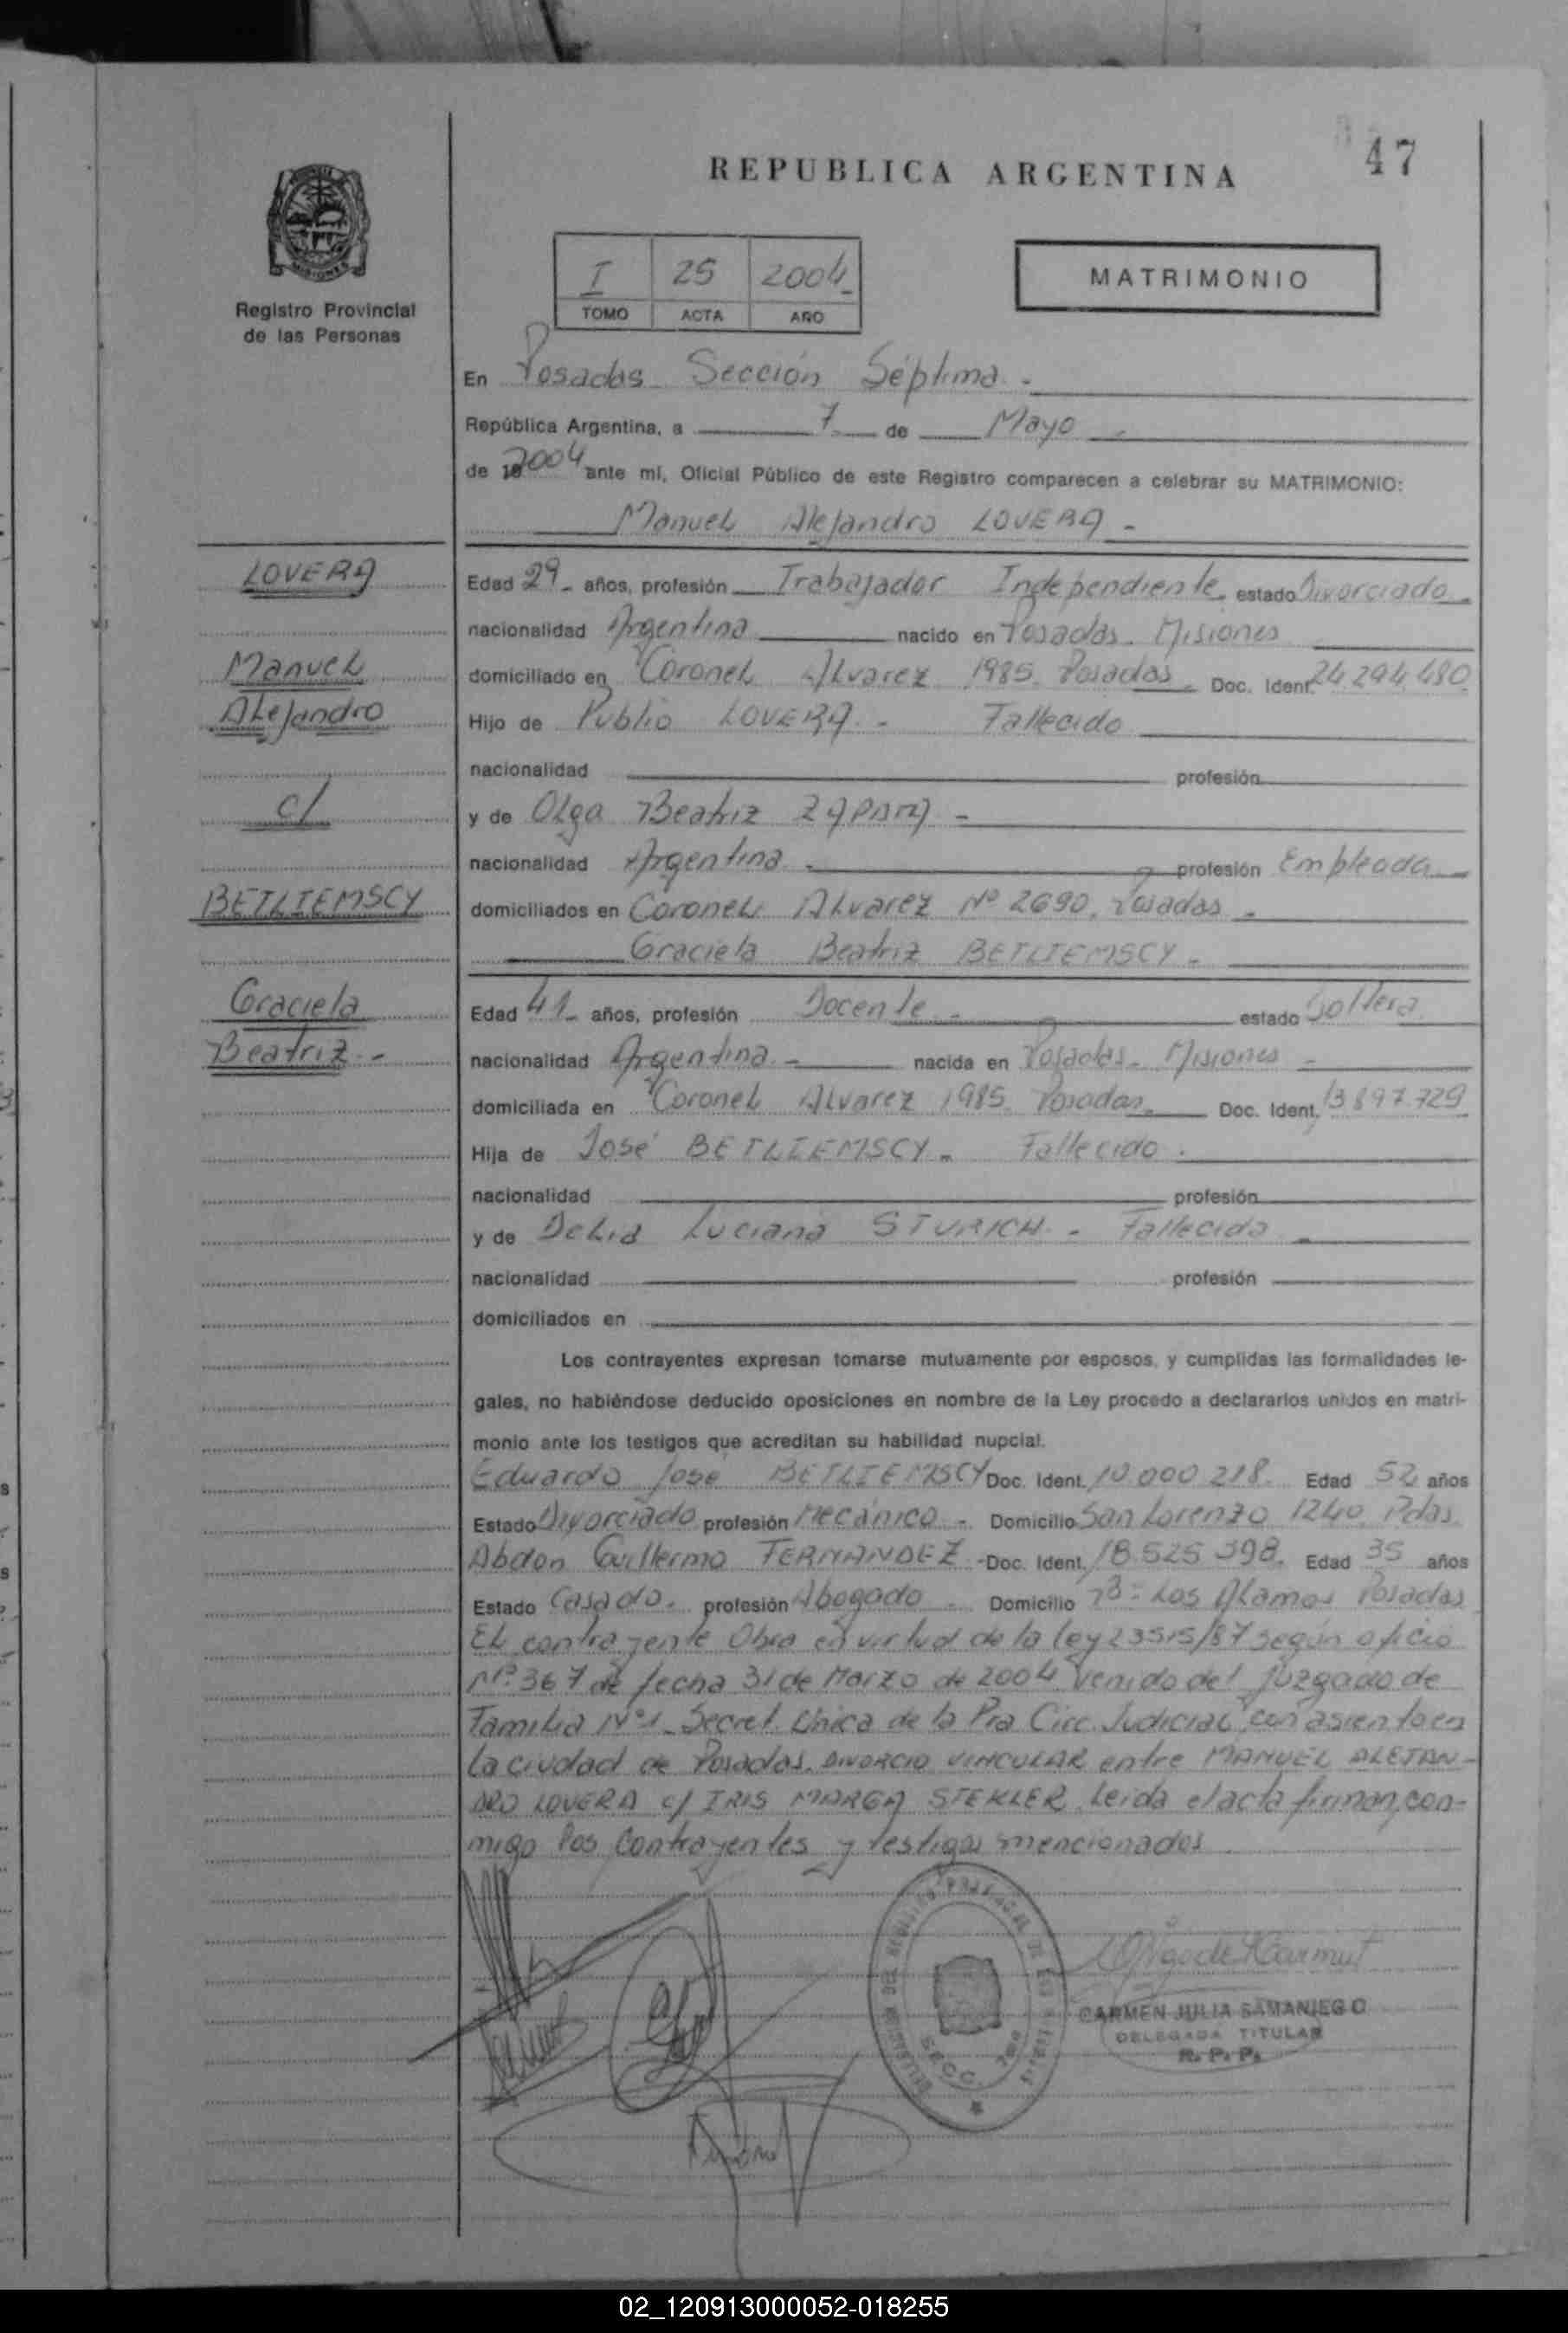 47
REPUBLICA ARGENTINA
MISIONES
Registro Provincial
de las Personas
I 25 2004
TOMO ACTA AÑO
MATRIMONIO
En Posadas Sección Séptima.
República Argentina, a 7 de Mayo
de 2004 ante mí, Oficial Público de este Registro comparecen a celebrar su MATRIMONIO:
Manuel Alejandro LOVERA -
LOVERA
Manuel
Alejandro
c/
BETLIEMSCY
Graciela
Beatriz.-
Edad 29 años, profesión Trabajador Independiente estado Divorciado
nacionalidad Argentina nacido en Posadas. Misiones
domiciliado en Coronel Alvarez 1985 Posadas Doc. Ident. 24.294.480
Hijo de Publio LOVERA. - Fallecido
nacionalidad profesión
y de Olga Beatriz -
nacionalidad Argentina profesión Empleada
domiciliados en Coronel Alvarez Nº 2690. Posadas
Graciela Beatriz BETLIEMSCY -
Edad 41 años, profesión Docente estado Soltera
nacionalidad Argentina nacida en Posadas. Misiones
domiciliada en Coronel Alvarez 1985 Posadas Doc. Ident. 13897.729
Hija de José BETLIEMSCY. Fallecido.
nacionalidad profesión
y de Delia Luciana STURICH. - Fallecida
nacionalidad profesión
domiciliados en
Los contrayentes expresan tomarse mutuamente por esposos, y cumplidas las formalidades le-
gales, no habiéndose deducido oposiciones en nombre de la Ley procedo a declararlos unidos en matri-
monio ante los testigos que acreditan su habilidad nupcial.
Eduardo José BETLIEMSCY Doc. Ident. 10.000.218. Edad 52 años
Estado Divorciado profesión Mecánico - Domicilio San Lorenzo 1240 Pdas.
Abdon Guillermo FERNANDEZ - Doc. Ident. 18.525.398. Edad 35 años
Estado Casado. profesión Abogado Domicilio Bº Los Alamos Posadas
El contrayente Obra en virtud de la ley 23515/87 según oficio
Nº 367 de fecha 31 de Marzo de 2004 venido del Juzgado de
Familia Nº1 Secret. Unica de la Pra Circ. Judicial, con asiento en
la ciudad de Posadas. DIVORCIO VINCULAR entre MANUEL ALEJAN-
DRO LOVERA c/ IRIS STEKLER. Leida el acta firman, con-
migo los Contrayentes y testigos mencionados
SECC. 7ma
CARMEN JULIA SAMANIEGO
DELEGADA TITULAR
R. P. P.
02_120913000052-018255